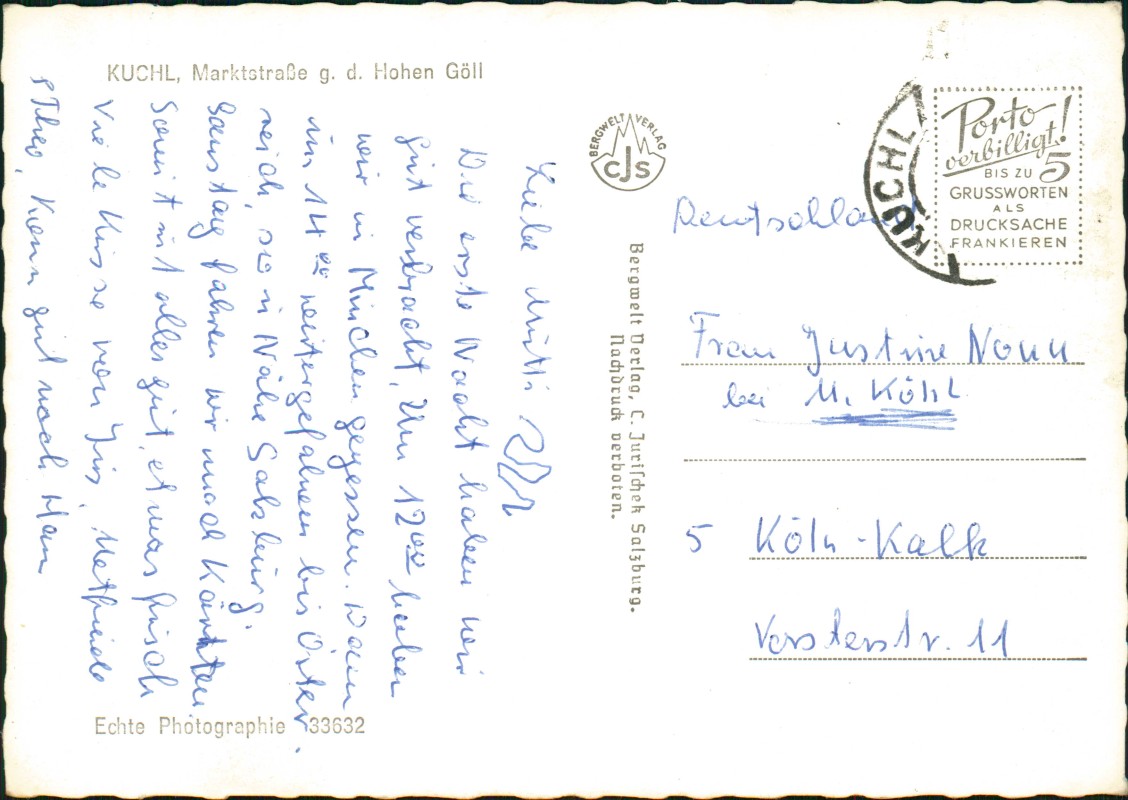 KUCHL, Marktstraße g. d. Hohen Göll
Liebe Mutti!
Die erste Nacht haben wir
gut verbracht. Um 12 00 haben
wir in München gegessen. Dann
um 14 00 weitergefahren bis Öster-
reich, so in Nähe Salzburg.
Samstag fahren wir nach Kärnten.
Somit ist alles gut, etwas frisch
Viele Küsse von Metfriede
+ Theo, Komm gut nach
Echte Photographie 33632
BERGWELT VERLAG
CJS
Bergwelt Verlag, C. Jurischek Salzburg.
Nachdruck verboten.
KUCHL
Porto
verbilligt!
BIS ZU 5
GRUSSWORTEN
ALS
DRUCKSACHE
FRANKIEREN
Deutschland
Frau Justine Nonn
bei M. Köhl
5 Köln-Kalk
Vorsterstr. 11